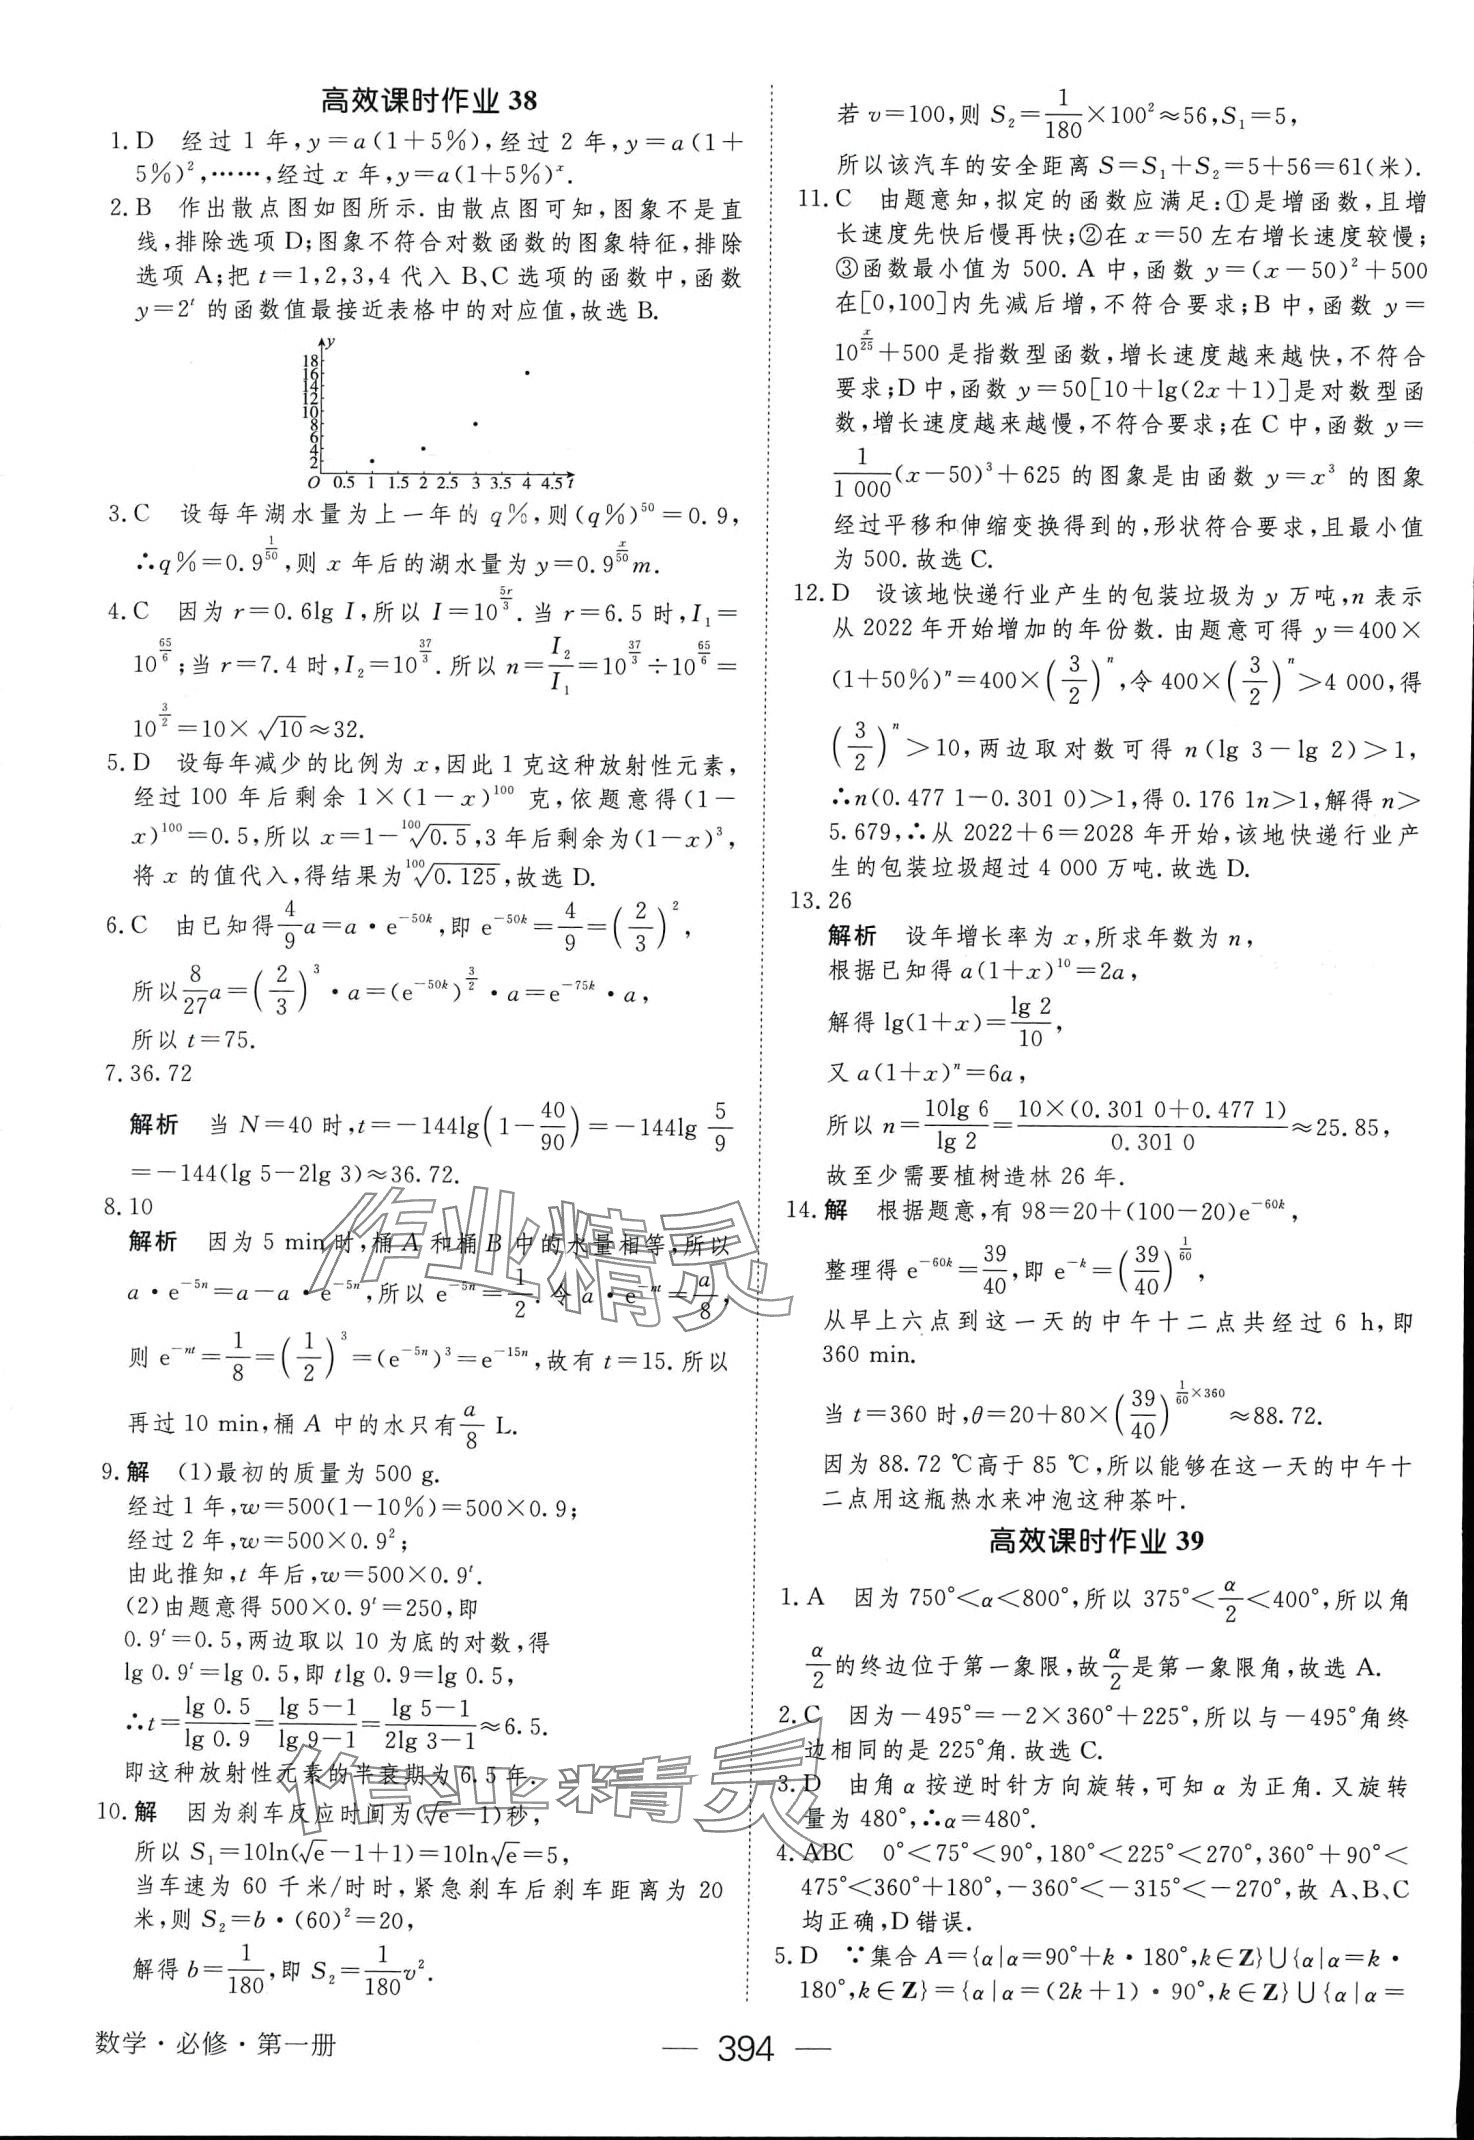 高效课时作业 38
1. D　经过 1 年,y=a(1+5%),经过 2 年,y=a(1+
5%)²,……,经过 x 年,y=a(1+5%)ˣ.
2. B　作出散点图如图所示.由散点图可知,图象不是直
线,排除选项 D;图象不符合对数函数的图象特征,排除
选项 A;把 t=1,2,3,4 代入 B、C 选项的函数中,函数
y=2ᵗ 的函数值最接近表格中的对应值,故选 B.
y
18
16
14
12
10
8
6
4
2
O 0.5 1 1.5 2 2.5 3 3.5 4 4.5 t
3. C　设每年湖水量为上一年的 q%,则(q%)⁵⁰=0.9,
∴q%=0.9^(1/50),则 x 年后的湖水量为 y=0.9^(x/50)m.
4. C　因为 r=0.6lg I,所以 I=10^(5r/3).当 r=6.5 时,I₁=
10^(65/6);当 r=7.4 时,I₂=10^(37/3).所以 n=I₂/I₁=10^(37/3)÷10^(65/6)=
10^(3/2)=10×√10≈32.
5. D　设每年减少的比例为 x,因此 1 克这种放射性元素,
经过 100 年后剩余 1×(1-x)¹⁰⁰ 克,依题意得(1-
x)¹⁰⁰=0.5,所以 x=1-¹⁰⁰√0.5,3 年后剩余为(1-x)³,
将 x 的值代入,得结果为¹⁰⁰√0.125,故选 D.
6. C　由已知得 4/9 a=a·e^(-50k),即 e^(-50k)=4/9=(2/3)²,
所以 8/27 a=(2/3)³·a=(e^(-50k))^(3/2)·a=e^(-75k)·a,
所以 t=75.
7. 36.72
解析　当 N=40 时,t=-144lg(1-40/90)=-144lg 5/9
=-144(lg 5-2lg 3)≈36.72.
8. 10
解析　因为 5 min时,桶 A 和桶 B 中的水量相等,所以
a·e^(-5n)=a-a·e^(-5n),所以 e^(-5n)=1/2.令 a·e^(-nt)=a/8,
则 e^(-nt)=1/8=(1/2)³=(e^(-5n))³=e^(-15n),故有 t=15.所以
再过 10 min,桶 A 中的水只有 a/8 L.
9. 解　(1)最初的质量为 500 g.
经过 1 年,w=500(1-10%)=500×0.9;
经过 2 年,w=500×0.9²;
由此推知,t 年后,w=500×0.9ᵗ.
(2)由题意得 500×0.9ᵗ=250,即
0.9ᵗ=0.5,两边取以 10 为底的对数,得
lg 0.9ᵗ=lg 0.5,即 tlg 0.9=lg 0.5,
∴t=lg 0.5/lg 0.9=(lg 5-1)/(lg 9-1)=(lg 5-1)/(2lg 3-1)≈6.5.
即这种放射性元素的半衰期为 6.5 年.
10. 解　因为刹车反应时间为(√e-1)秒,
所以 S₁=10ln(√e-1+1)=10ln√e=5,
当车速为 60 千米/时时,紧急刹车后刹车距离为 20
米,则 S₂=b·(60)²=20,
解得 b=1/180,即 S₂=1/180 v².
若 v=100,则 S₂=1/180×100²≈56,S₁=5,
所以该汽车的安全距离 S=S₁+S₂=5+56=61(米).
11. C　由题意知,拟定的函数应满足:①是增函数,且增
长速度先快后慢再快;②在 x=50 左右增长速度较慢;
③函数最小值为 500. A 中,函数 y=(x-50)²+500
在[0,100]内先减后增,不符合要求;B 中,函数 y=
10^(x/25)+500 是指数型函数,增长速度越来越快,不符合
要求;D 中,函数 y=50[10+lg(2x+1)]是对数型函
数,增长速度越来越慢,不符合要求;在 C 中,函数 y=
1/1 000(x-50)³+625 的图象是由函数 y=x³ 的图象
经过平移和伸缩变换得到的,形状符合要求,且最小值
为 500.故选 C.
12. D　设该地快递行业产生的包装垃圾为 y 万吨,n 表示
从 2022 年开始增加的年份数.由题意可得 y=400×
(1+50%)ⁿ=400×(3/2)ⁿ,令 400×(3/2)ⁿ>4 000,得
(3/2)ⁿ>10,两边取对数可得 n(lg 3-lg 2)>1,
∴n(0.477 1-0.301 0)>1,得 0.176 1n>1,解得 n>
5.679,∴从 2022+6=2028 年开始,该地快递行业产
生的包装垃圾超过 4 000 万吨.故选 D.
13. 26
解析　设年增长率为 x,所求年数为 n,
根据已知得 a(1+x)¹⁰=2a,
解得 lg(1+x)=lg 2/10,
又 a(1+x)ⁿ=6a,
所以 n=10lg 6/lg 2=10×(0.301 0+0.477 1)/0.301 0≈25.85,
故至少需要植树造林 26 年.
14. 解　根据题意,有 98=20+(100-20)e^(-60k),
整理得 e^(-60k)=39/40,即 e^(-k)=(39/40)^(1/60),
从早上六点到这一天的中午十二点共经过 6 h,即
360 min.
当 t=360 时,θ=20+80×(39/40)^(1/60×360)≈88.72.
因为 88.72 ℃高于 85 ℃,所以能够在这一天的中午十
二点用这瓶热水来冲泡这种茶叶.
高效课时作业 39
1. A　因为 750°<α<800°,所以 375°<α/2<400°,所以角
α/2的终边位于第一象限,故α/2是第一象限角,故选 A.
2. C　因为-495°=-2×360°+225°,所以与-495°角终
边相同的是 225°角.故选 C.
3. D　由角 α 按逆时针方向旋转,可知 α 为正角.又旋转
量为 480°,∴α=480°.
4. ABC　0°<75°<90°,180°<225°<270°,360°+90°<
475°<360°+180°,-360°<-315°<-270°,故 A、B、C
均正确,D 错误.
5. D　∵集合 A={α|α=90°+k·180°,k∈Z}∪{α|α=k·
180°,k∈Z}={α|α=(2k+1)·90°,k∈Z}∪{α|α=
数学·必修·第一册
— 394 —
作业精灵
作业精灵